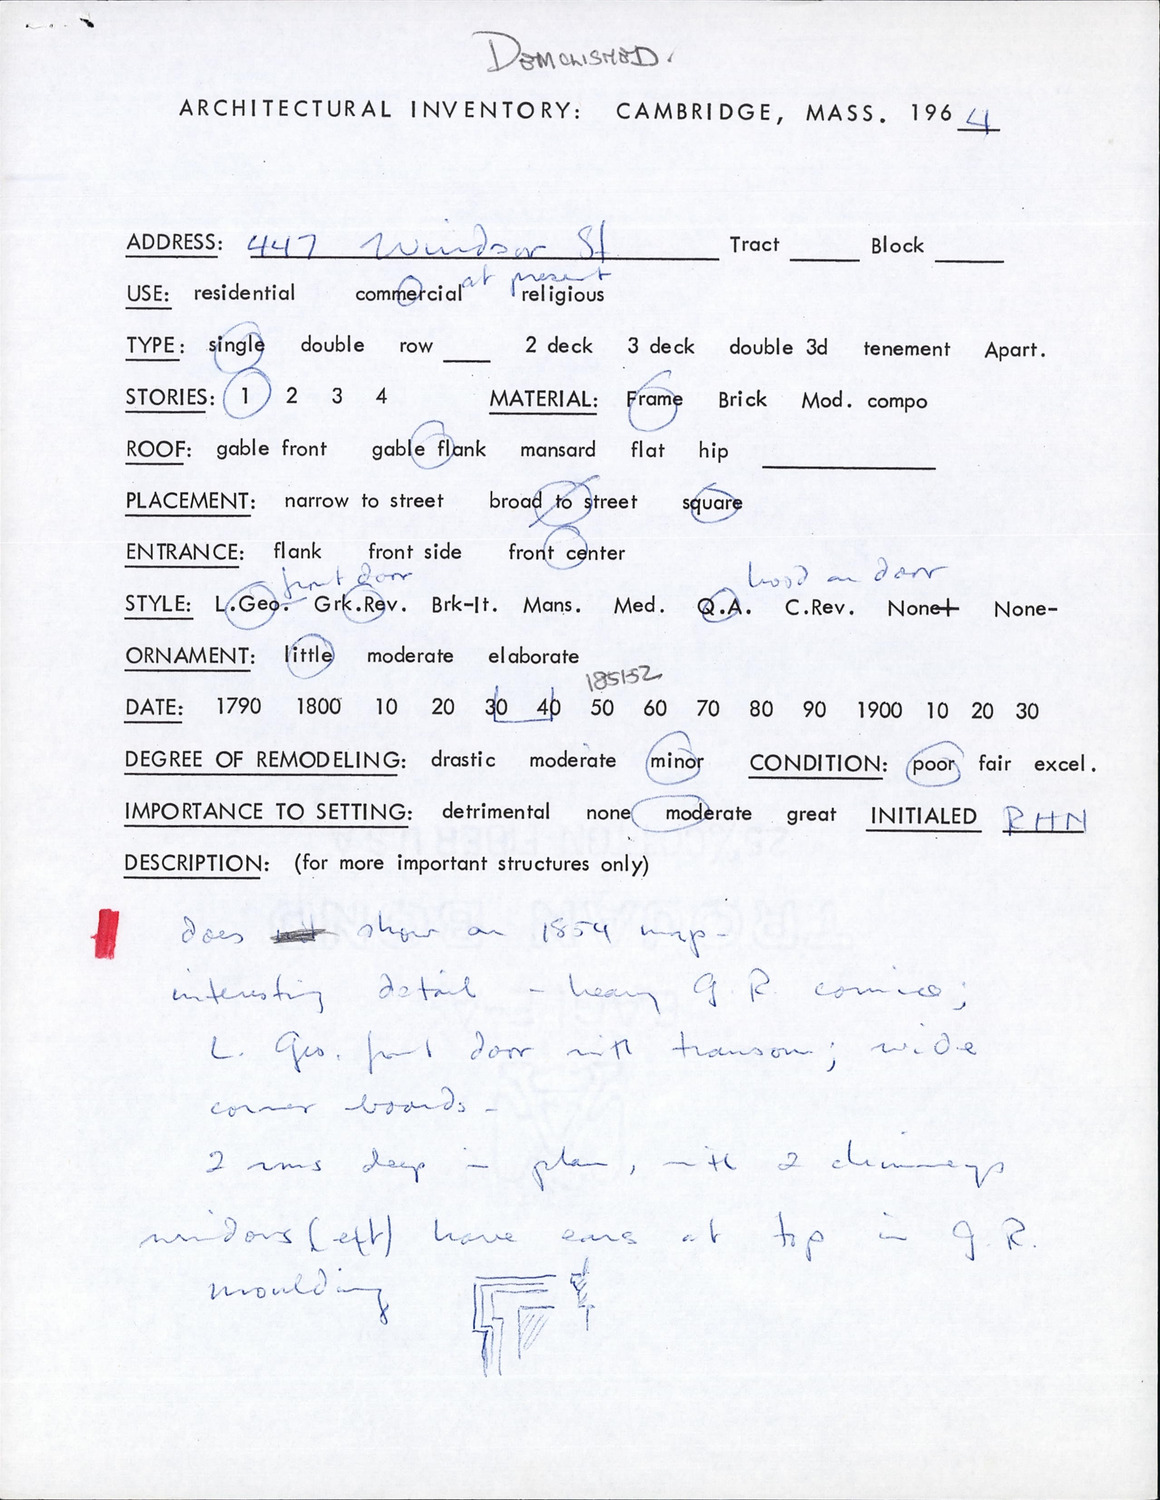 DEMOLISHED.
ARCHITECTURAL INVENTORY: CAMBRIDGE, MASS. 1964
ADDRESS: 447 Windsor St Tract Block
at present
USE: residential commercial religious
TYPE: single double row 2 deck 3 deck double 3d tenement Apart.
STORIES: 1 2 3 4 MATERIAL: Frame Brick Mod. compo
ROOF: gable front gable flank mansard flat hip
PLACEMENT: narrow to street broad to street square
ENTRANCE: flank front side front center
front door hood on door
STYLE: L.Geo. Grk.Rev. Brk-It. Mans. Med. Q.A. C.Rev. None+ None-
ORNAMENT: little moderate elaborate
1851-52
DATE: 1790 1800 10 20 30 40 50 60 70 80 90 1900 10 20 30
DEGREE OF REMODELING: drastic moderate minor CONDITION: poor fair excel.
IMPORTANCE TO SETTING: detrimental none moderate great INITIALED RHN
DESCRIPTION: (for more important structures only)
does show on 1854 map-
interesting detail - heavy G.R. cornice;
L. Geo. front door with transom; wide
corner boards -
2 rms deep in plan, with 2 chimneys
windows (ext) have ears at top in G.R.
moulding